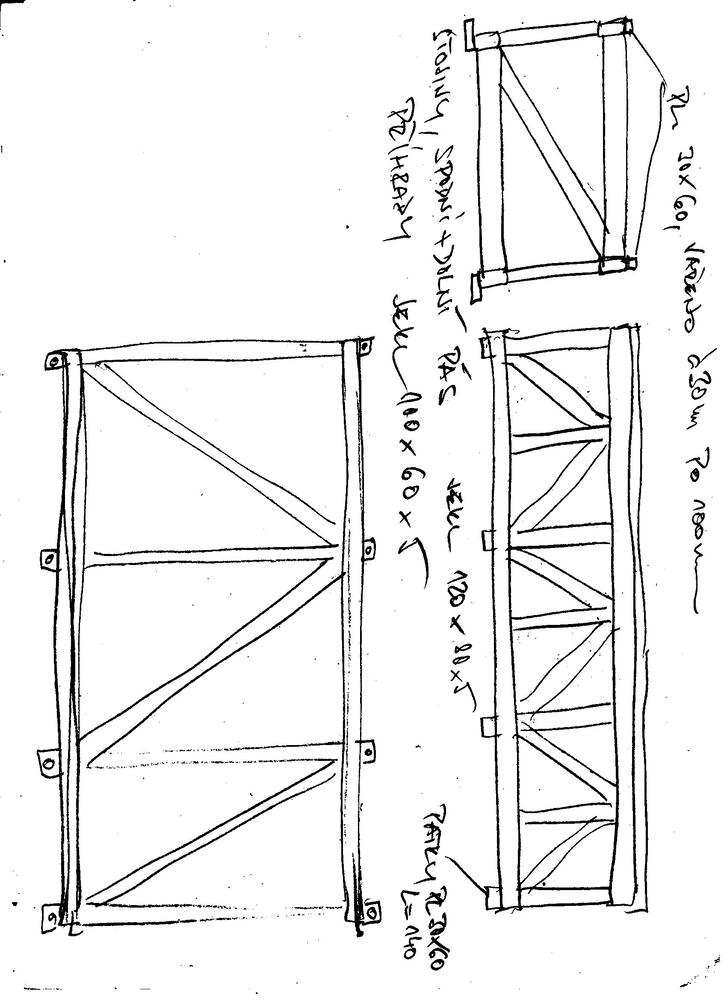 PL 30x60, VAŘENO à 30mm PO 100mm
STOJINY, SPODNÍ + DOLNÍ PÁS JEKL 120 x 80 x 5
PŘÍHRADY JEKL 100 x 60 x 5
PATKY PL 30x60
L=140